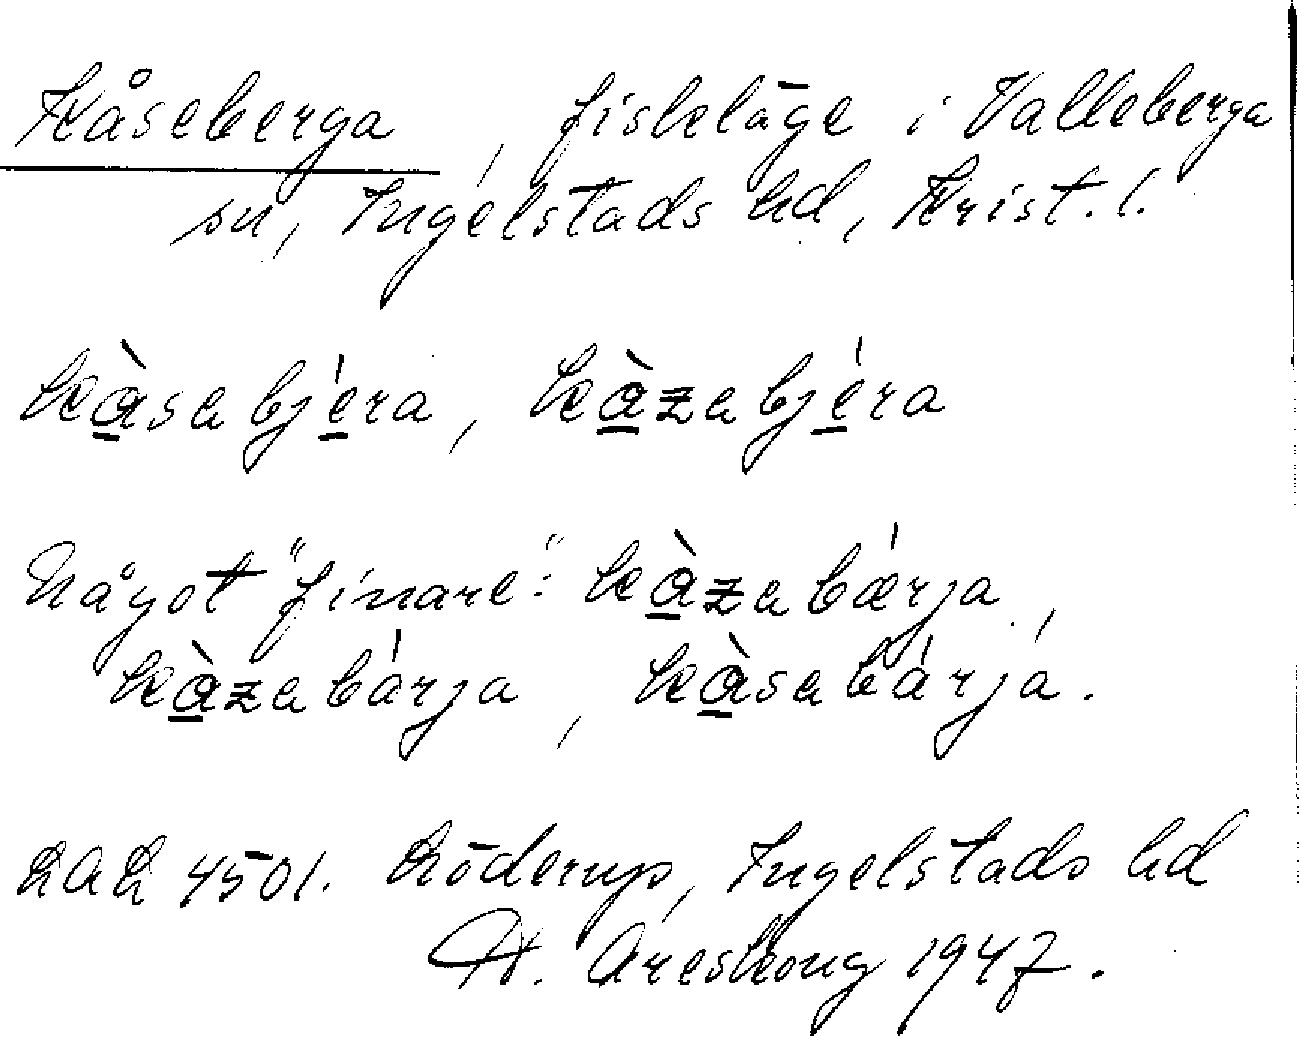 Kåseberga, fiskeläge i Valleberga
sn, Ingelstads hd, Krist. l.
kàsabjéra, kàzabjéra
Något "finare": kàzabǽrja,
kàzabárja, kàsabárja.
LAL 4501. Löderup, Ingelstads hd
H. Areskoug 1947.